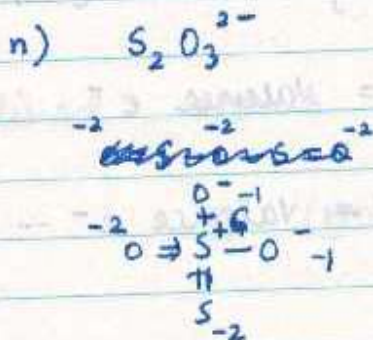 n) S₂O₃²⁻
-2 -2 -2
O⁻ -1
+6
-2 O ⇒ S — O⁻ -1
||
S -2